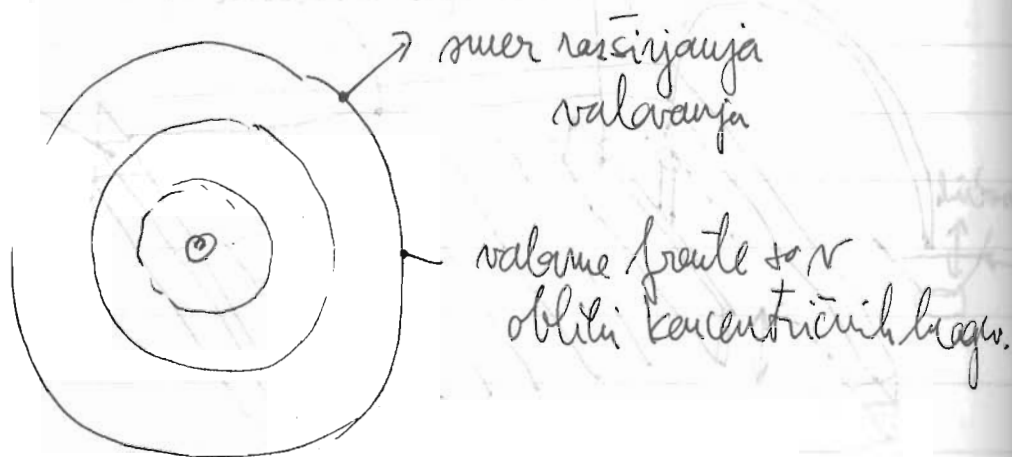 smer razširjanja
valovanja
valovne fronte so v
obliki koncentričnih krogov.